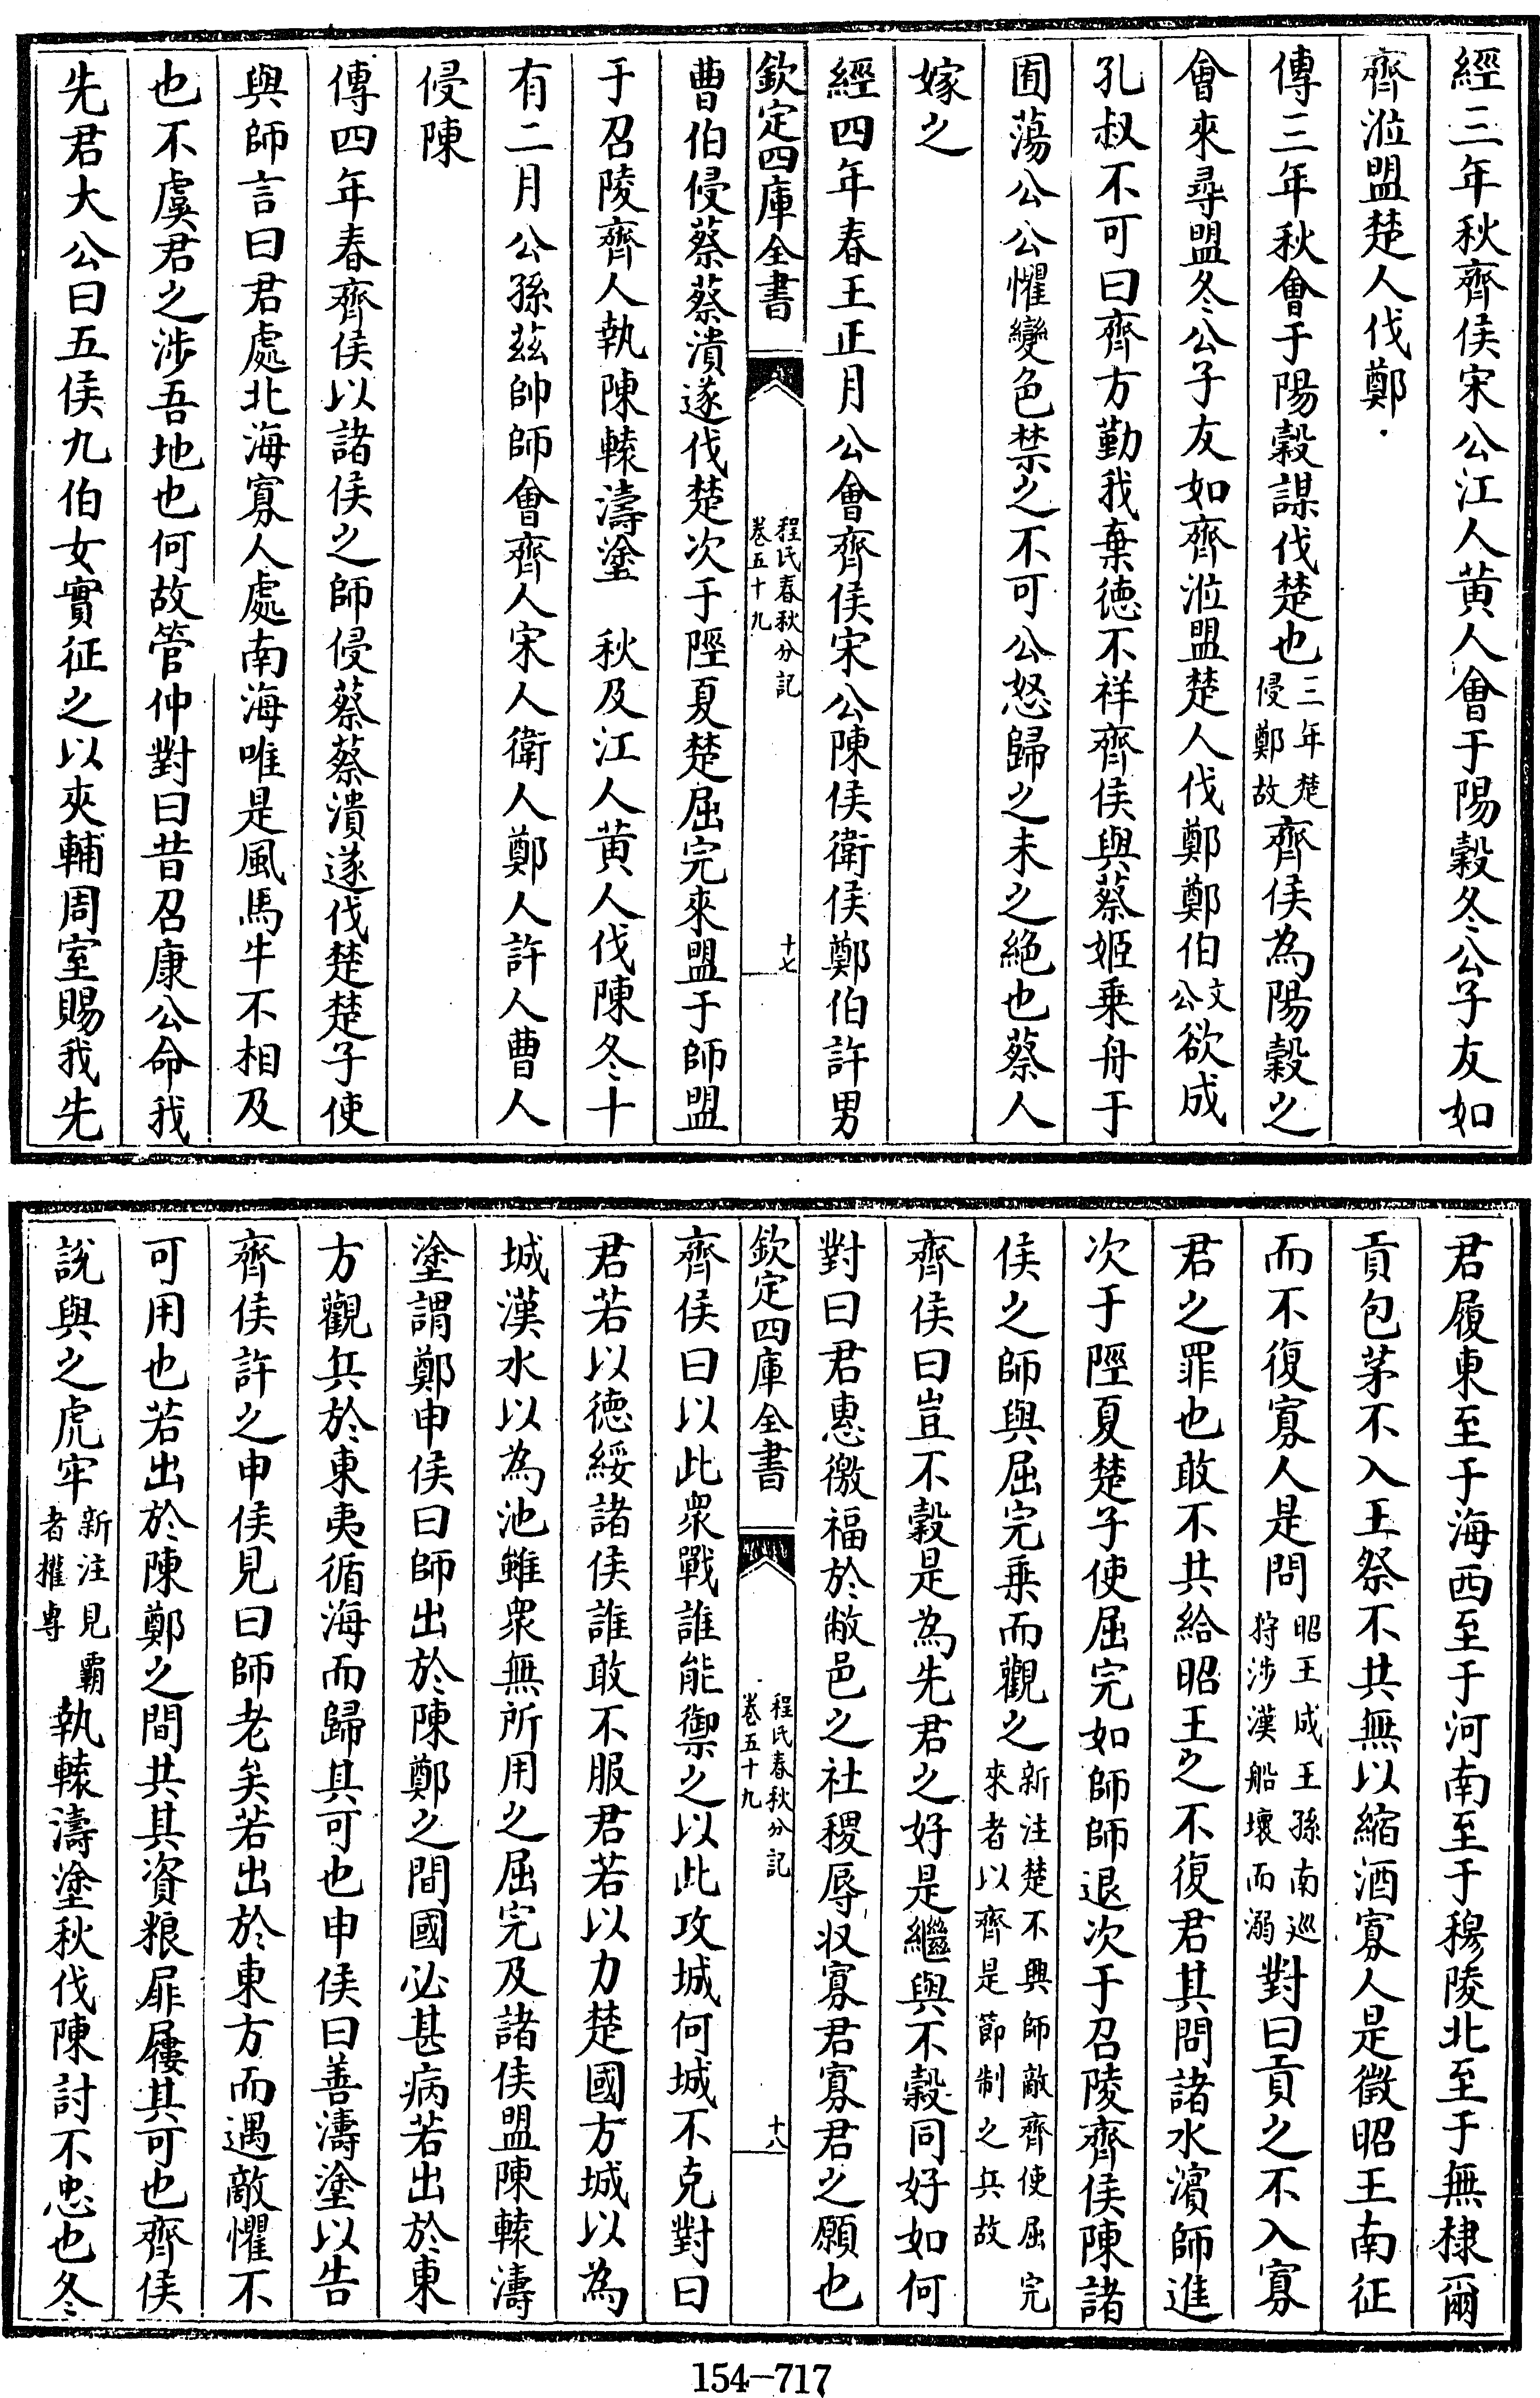 經三年秋齊侯宋公江人黄人會于陽穀冬公子友如
齊涖盟楚人伐鄭
傳三年秋會于陽穀謀伐楚也三年楚侵鄭故齊侯為陽穀之
會來尋盟冬公子友如齊涖盟楚人伐鄭鄭伯文公欲成
孔叔不可曰齊方勤我棄徳不祥齊侯與蔡姬乗舟于
囿蕩公公懼變色禁之不可公怒歸之未之絶也蔡人
嫁之
經四年春王正月公會齊侯宋公陳侯衛侯鄭伯許男
欽定四庫全書
程氏春秋分記
卷五十九
十七
曹伯侵蔡蔡潰遂伐楚次于陘夏楚屈完來盟于師盟
于召陵齊人執陳轅濤塗　秋及江人黄人伐陳冬十
有二月公孫茲帥師會齊人宋人衛人鄭人許人曹人
侵陳
傳四年春齊侯以諸侯之師侵蔡蔡潰遂伐楚楚子使
與師言曰君處北海寡人處南海唯是風馬牛不相及
也不虞君之涉吾地也何故管仲對曰昔召康公命我
先君大公曰五侯九伯女實征之以夾輔周室賜我先
君履東至于海西至于河南至于穆陵北至于無棣爾
貢包茅不入王祭不共無以縮酒寡人是徵昭王南征
而不復寡人是問昭王成王孫南巡狩涉漢船壞而溺對曰貢之不入寡
君之罪也敢不共給昭王之不復君其問諸水濱師進
次于陘夏楚子使屈完如師師退次于召陵齊侯陳諸
侯之師與屈完乗而觀之新注楚不興師敵齊使屈完來者以齊是節制之兵故
齊侯曰豈不穀是為先君之好是繼與不穀同好如何
對曰君惠徼福於敝邑之社稷辱収寡君寡君之願也
欽定四庫全書
程氏春秋分記
卷五十九
十八
齊侯曰以此衆戰誰能御之以此攻城何城不克對曰
君若以徳綏諸侯誰敢不服君若以力楚國方城以為
城漢水以為池雖衆無所用之屈完及諸侯盟陳轅濤
塗謂鄭申侯曰師出於陳鄭之間國必甚病若出於東
方觀兵於東夷循海而歸其可也申侯曰善濤塗以告
齊侯許之申侯見曰師老矣若出於東方而遇敵懼不
可用也若出於陳鄭之間共其資粮屝屨其可也齊侯
說與之虎牢新注見霸者權專執轅濤塗秋伐陳討不忠也冬
154-717